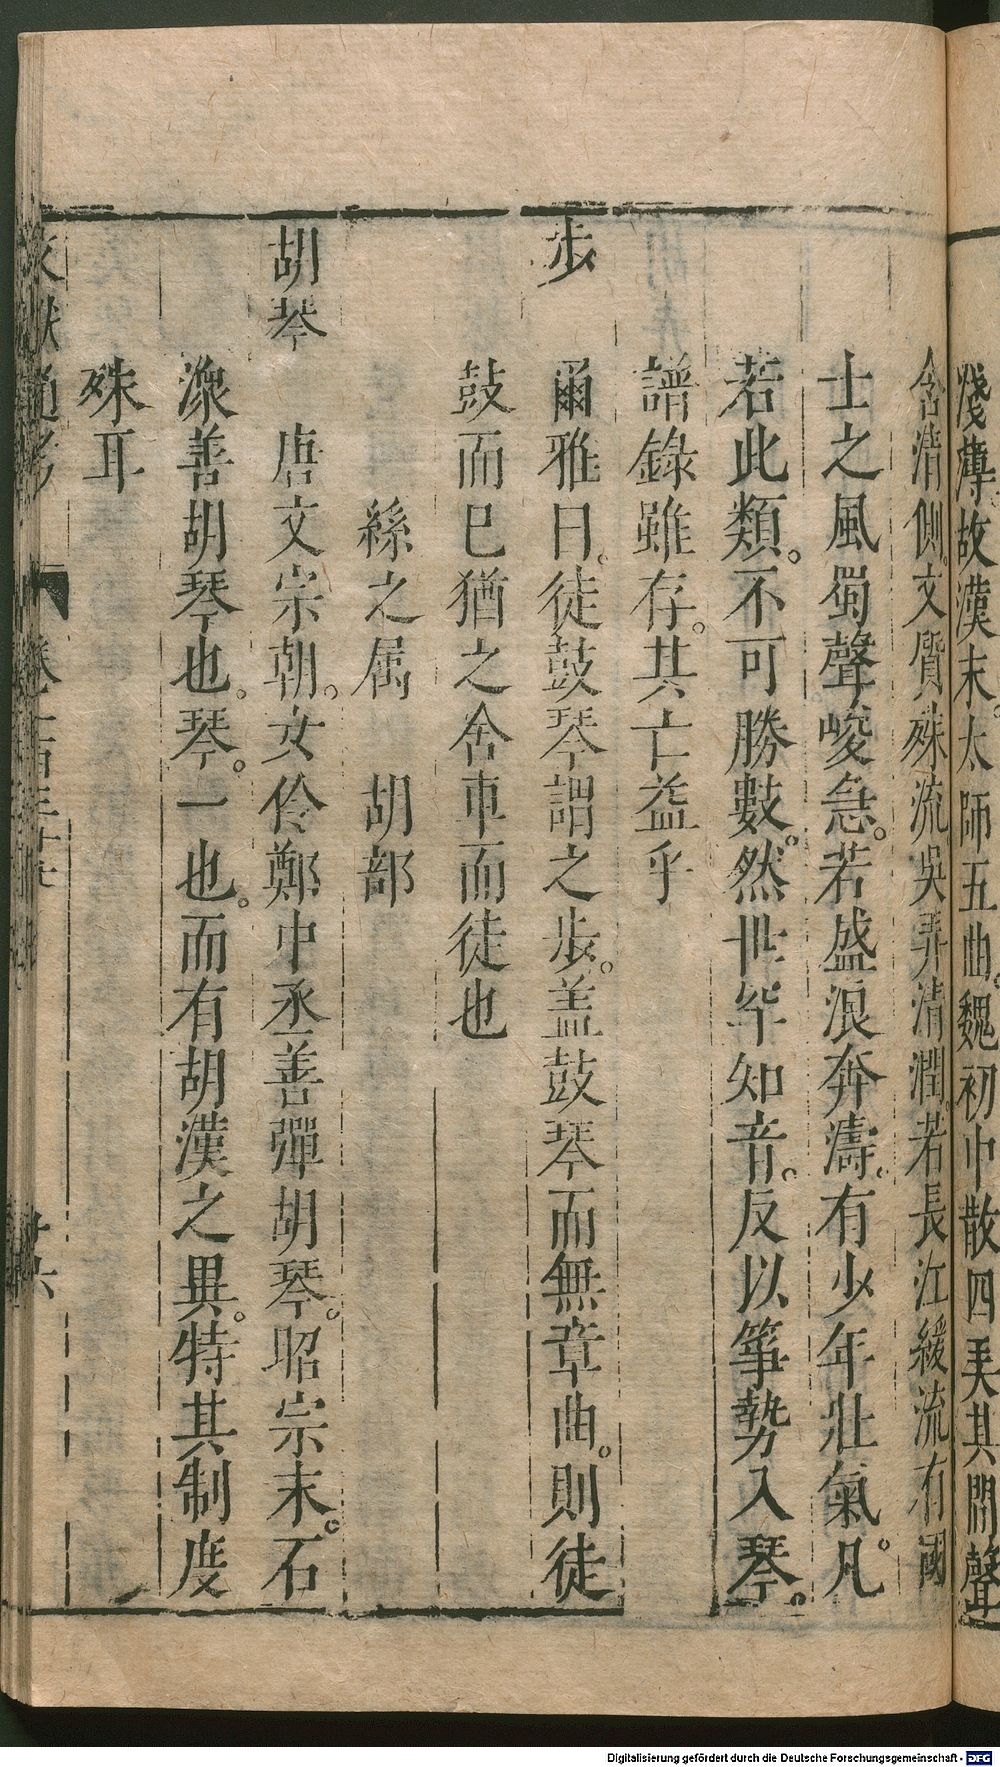 淺薄故漢末太師五曲魏初中散四弄其間聲
含清側文質殊流吳弄清潤若長江緩流有國
士之風蜀聲峻急若盛浪奔濤有少年壯氣凡
若此類不可勝數然世罕知音反以箏勢入琴
譜錄雖存其亡益乎
步
爾雅曰徒鼓琴謂之步盖鼓琴而無章曲則徒
鼓而已猶之舍車而徒也
絲之属 胡部
胡琴
唐文宗朝女伶鄭中丞善彈胡琴昭宗末石
潨善胡琴也琴一也而有胡漢之異特其制度
殊耳
文獻通考 卷一百三十七 廿六
Digitalisierung gefördert durch die Deutsche Forschungsgemeinschaft - DFG